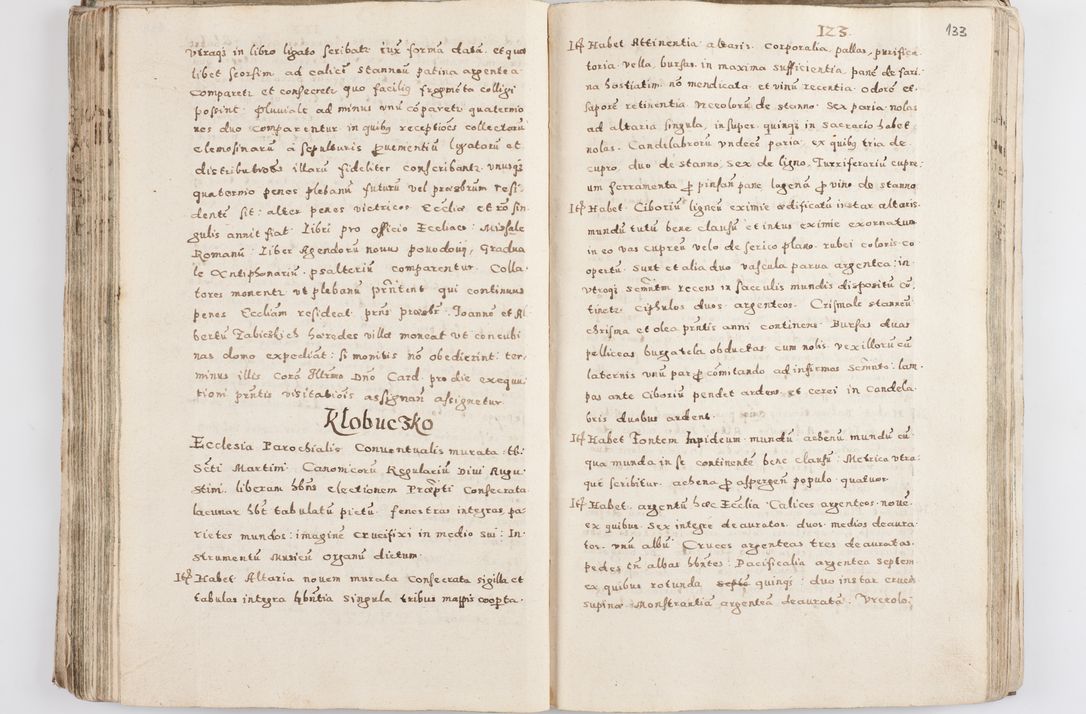 utraqȝ in libro ligato scribatr iuxᵃ formā datā. et quo
libet seorsim ad calicē stanneū patina argentea
comparetr et consecretr quo facilius fragmēta colligi
possint. Pluviale ad minus unū cōparetr quaternio
nes duo comparentur in quibȝ receptiões collectarū
elemosinarū a sepulturis proventiū legatorū et
distributiõs illarū fideliter conscribantr. unusqȝ
quaternio penes plebanū futurū vel presbrum resi
dentē sit: alter penes vietricos Eccliae et rō sin
gulis annis fiat. Libri pro officio Eccliae: Missale
Romanū: Liber Agendorū novus ponodoȝ, Gradua
le Antiphonariū. psalteriū comparentur. Colla
tores monentr ut plebanū prñtent qui continuus
penes Eccliam resideat. prñs presbr Joannē et Al
bertū Zabicskich haeredes villae moneat ut concubi
nas domo expediāt: si monitis nō obedierint: ter
minus illis corā Illrmo Dño Card. pro die exequu
tioni prñtis visitatiõis assignan assignetur.
Klobuczko
Ecclesia Parochialis Conventualis murata: tti:
Scti Martini Canonicorū Regulariū Divi Augu
stini. liberam hbñs electionem Praepti Consecrata
lacunar hbt tabulatū pictū. fenestras integras, pa
rietes mundos: imaginē crucifixi in medio sui: In
strumentū Musicū Organū dictum.
Itȩ Habet Altaria novem murata Consecrata sigilla et
tabulas integra hbñtia singula tribus mappis coopta.
123. 133
Itȩ Habet Attinentia altaris. Corporalia, pallas, purifica
toria vella, bursas in maxima sufficientia, panē de fari
na hostiatim nō mendicata et vinū recentia odorē et
saporē retinentia. Vrceolorū de stanno sex paria: nolas
ad altaria singula, insuper quinqȝ in sacrario habet
nolas. Candelabrorū undecē paria, ex quibȝ tria de
cupro, duo de stanno, sex de ligno, Turriferariū cupre
um ferramenta p pinsan pane lagenā p vino de stanno
Itȩ Habet Ciboriū ligneū eximie aedificatū instar altaris.
mundū tutū bene clausū et intus eximie exornatum
in eo vas cupreū velo de serico plano rubei coloris co
opertū. Sunt et alia duo vascula parva argentea: in
utroqȝ Scmntm recens in sacculis mundis dispositū cō
tinetr Ciphulos duos argenteos. Crismale stanneū
chrisma et olea prñtis anni continens. Bursas duas
pelliceas burgatela obductas cum nolis. vexillorū cū
laternis unū par p comitando ad infirmos Scmnto: lam
pas ante Ciboriū pendet ardens et cerei in Candela
bris duobus ardent.
Itȩ Habet Fontem lapideum mundū ahenū mundū cū
qua munda in se continentē bene clausū: Metrica utra
que scribitur. ahena p aspergen populo quatuor
Itȩ Habet argentū haec Ecclia Calices argenteos novē
ex quibus sex integre deauratos. duos medios deaura
tos. unū albū Cruces argenteas tres deauratas.
pedes tn albas hbñtes: Pacificalia argentea septem
ex quibus rotunda septē quinqȝ: duo instar crucis
supinae. Monstrantiā argenteā deauratā. Vrceolos